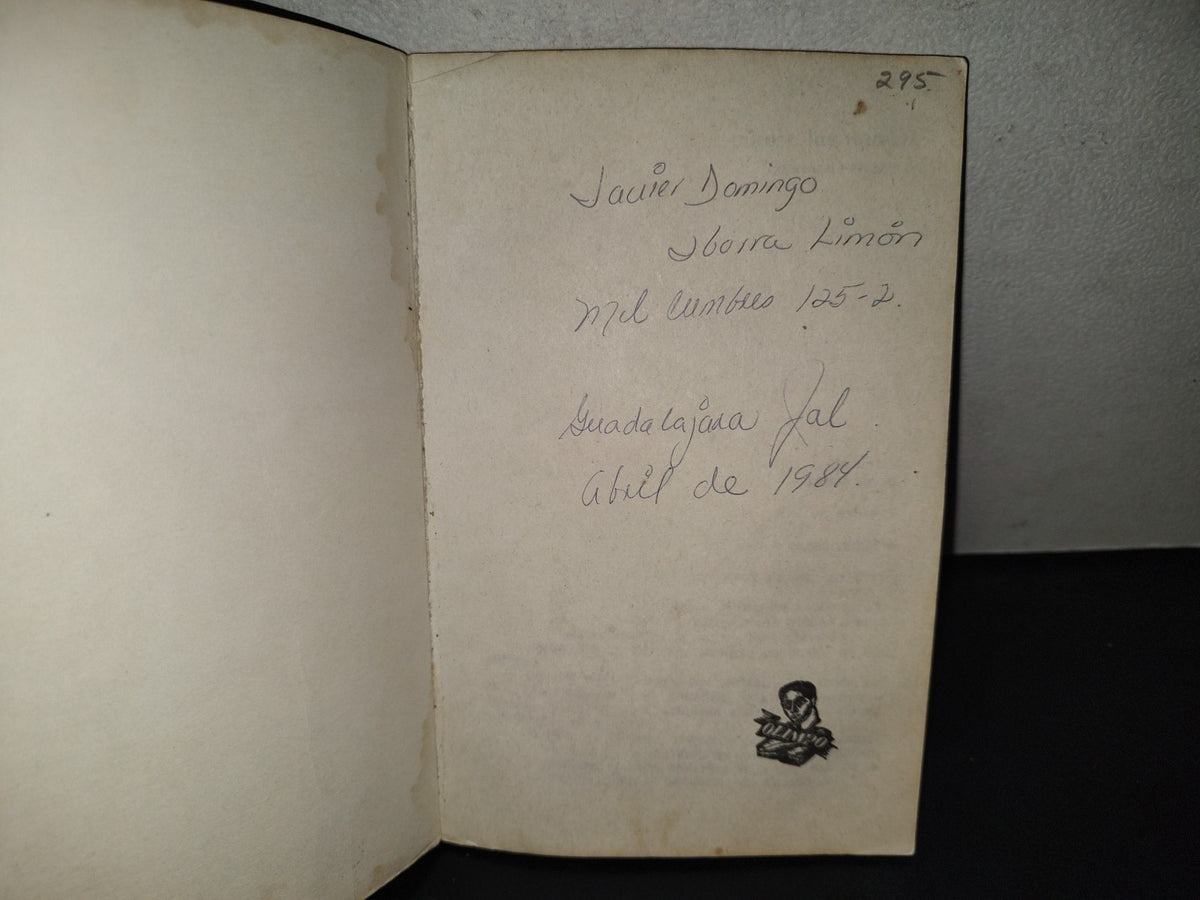 295
Javier Domingo
Ibarra Limón
Mil Cumbres 125-2.
Guadalajara Jal.
Abril de 1984.